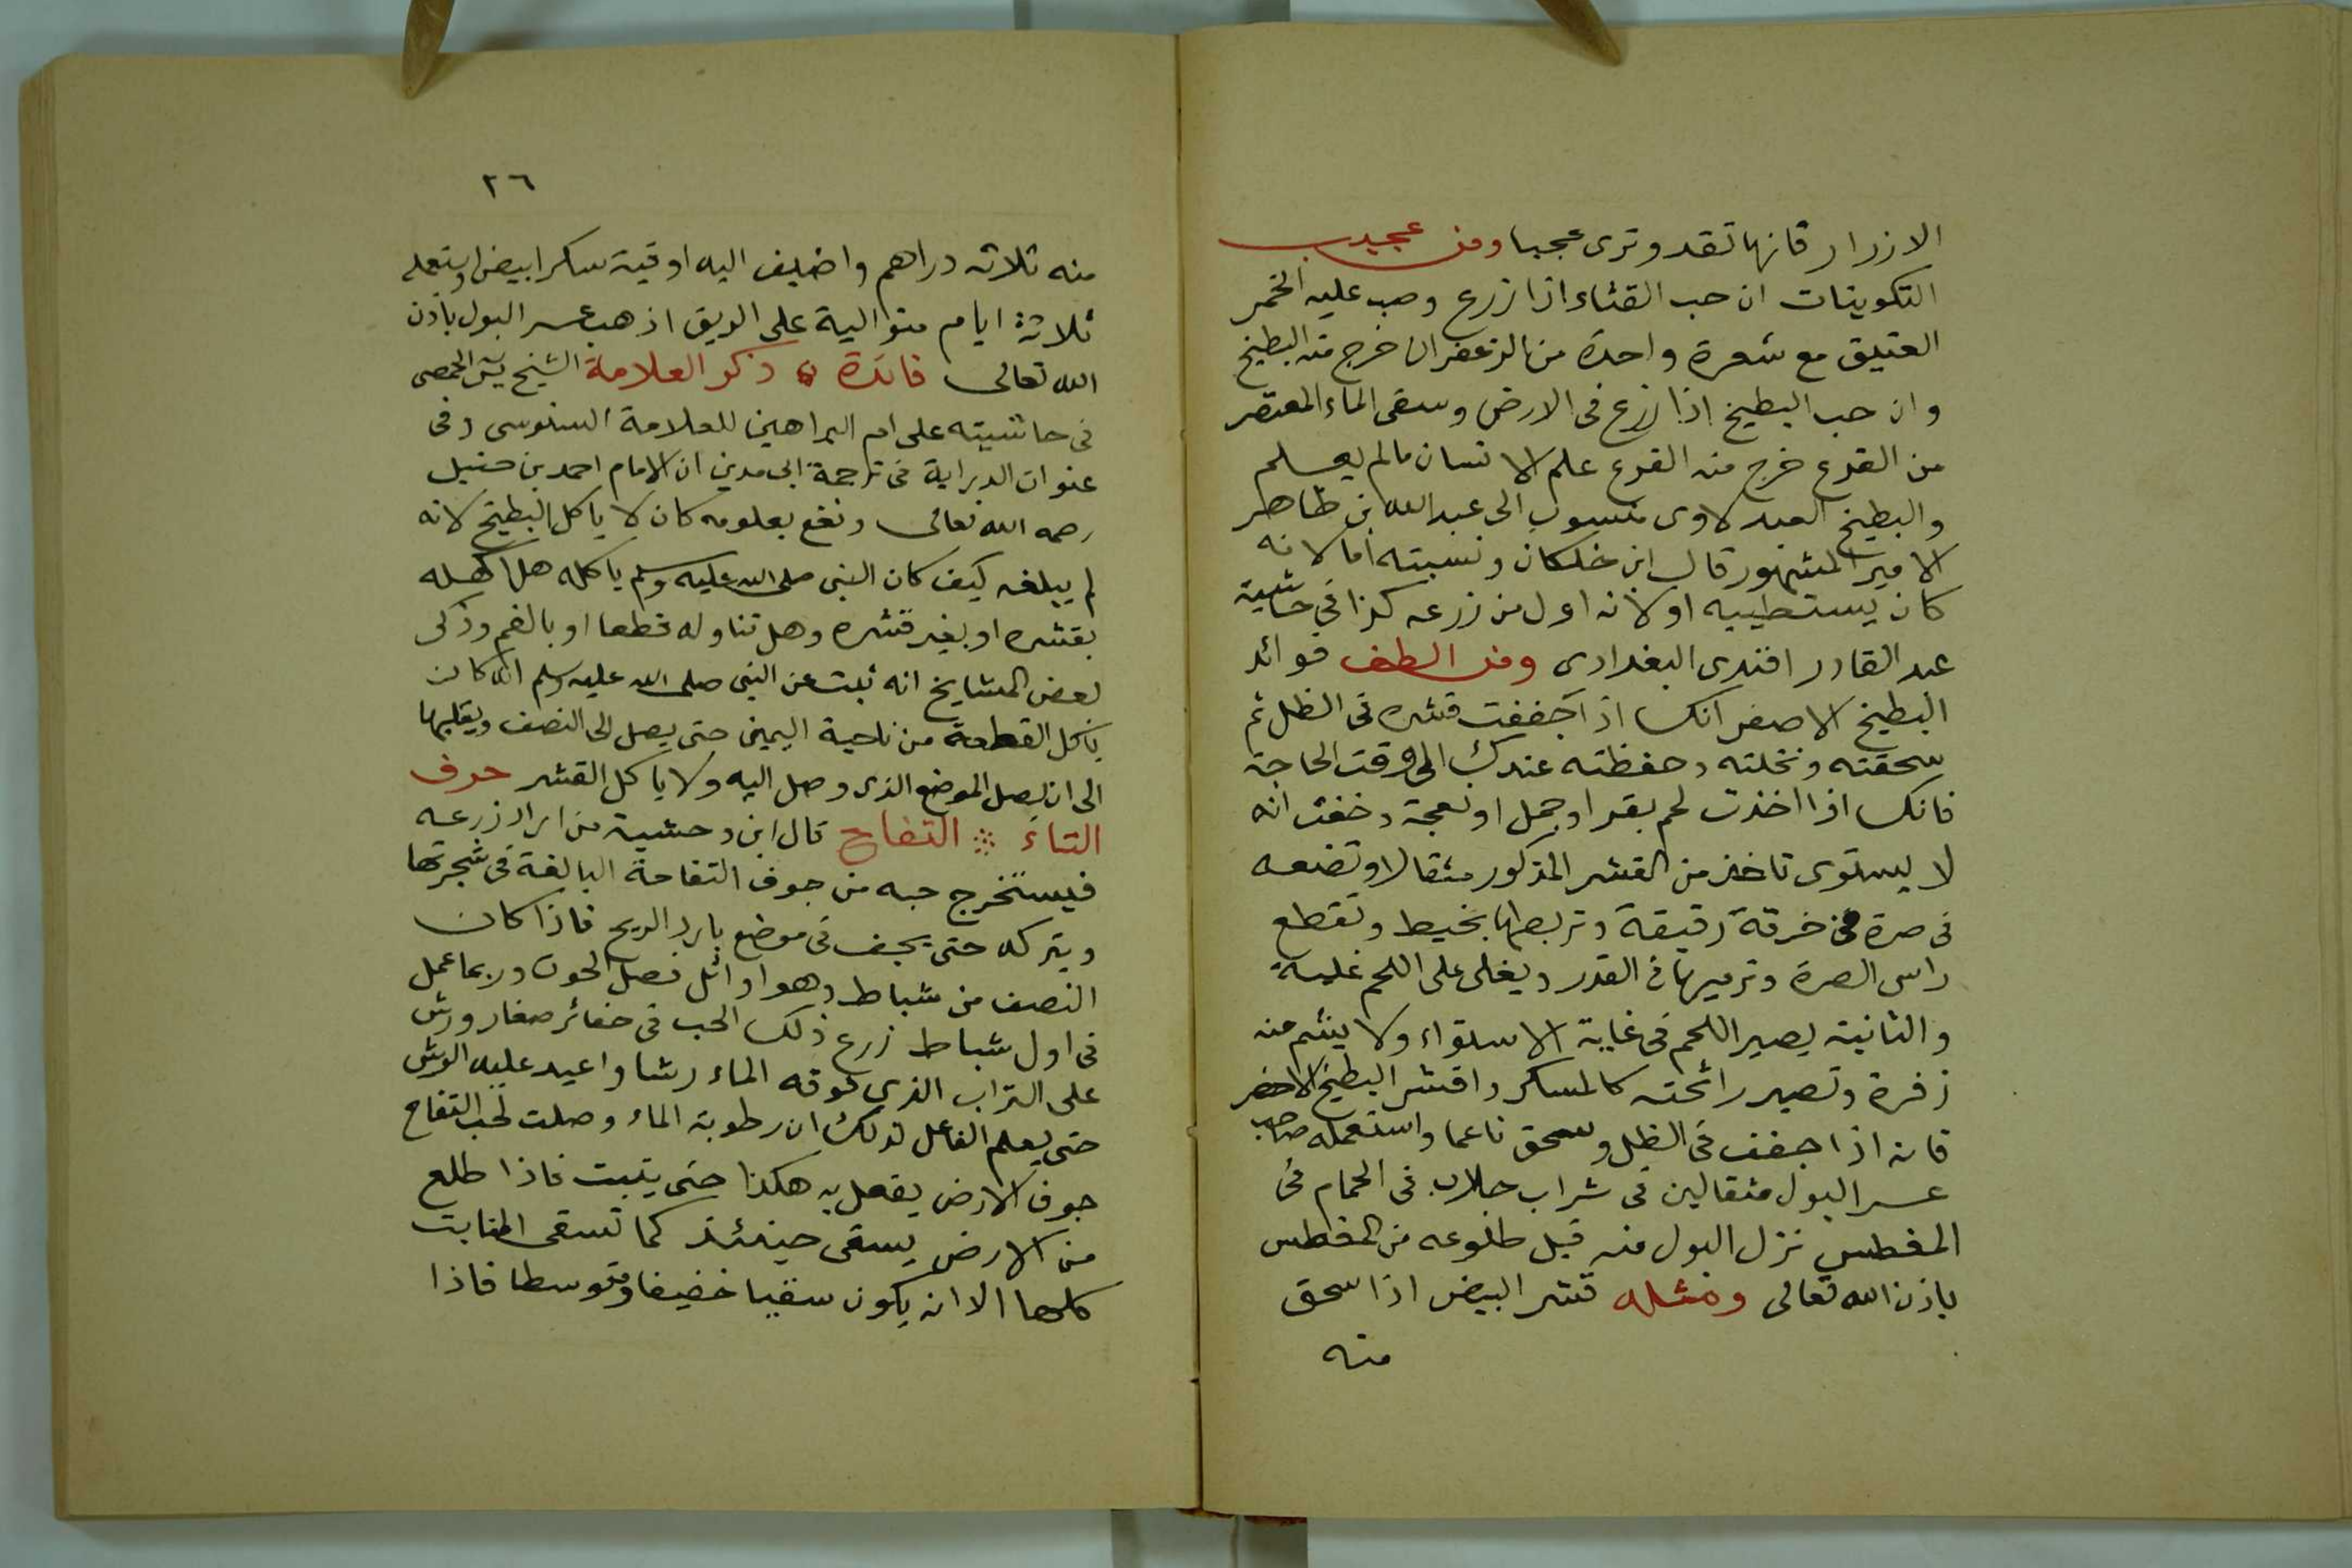 الازرار فانها تقد وترى عجبا ومن عجيب
التكوينات ان حب القثاء اذا زرع وصب عليه الخمر
العتيق مع شعرة واحدة من الزعفران خرج منه البطيخ
وان حب البطيخ اذا زرع فى الارض وسقى الماء المعتصر
من القرع خرج منه القرع علم الانسان مالم يعلم
والبطيخ العبدلاوى منسوب الى عبد الله بن طاهر
الامير المشهور قال ابن خلكان ونسبته اما لانه
كان يستطيبه او لانه اول من زرعه كذا فى حاشية
عبد القادر افندى البغدادى ومن الطف فوائد
البطيخ الاصفر انك اذا جففت قشره فى الظل ثم
سحقته ونخلته وحفظته عندك الى وقت الحاجة
فانك اذا اخذت لحم بقر او جمل او نعجة وخفت انه
لا يستوى تاخذ من القشر المذكور مثقالا وتضعه
فى صرة فى خرقة رقيقة وتربطها بخيط وتقطع
راس الصرة وترميها فى القدر ويغلى على اللحم غلية
والثانية يصير اللحم فى غاية الاستواء ولا يشم منه
زفرة وتصير رائحته كالمسك واقشر البطيخ الاخضر
فانه اذا جفف فى الظل وسحق ناعما واستعمله صاحب
عسر البول مثقالين فى شراب جلاب فى الحمام فى
المغطس نزل البول منه قبل طلوعه من المغطس
باذن الله تعالى ومثله قشر البيض اذا سحق
منه
٢٦
منه ثلاثة دراهم واضيف اليه اوقية سكر ابيض واستعمله
ثلاثة ايام متوالية على الريق اذهب عسر البول باذن
الله تعالى فائدة ذكر العلامة الشيخ يس الحمصى
فى حاشيته على ام البراهين للعلامة السنوسى وفى
عنوان الدراية فى ترجمة ابى مدين ان الامام احمد بن حنبل
رحمه الله تعالى ونفع بعلومه كان لا ياكل البطيخ لانه
لم يبلغه كيف كان النبى صلى الله عليه وسلم ياكله هل اكله
بقشره او بغير قشره وهل تناوله قطعا او بالفم وذكر
بعض المشايخ انه ثبت عن النبى صلى الله عليه وسلم انه كان
ياكل القطعة من ناحية اليمين حتى يصل الى النصف ويقلبها
الى ان يصل الموضع الذى وصل اليه ولا ياكل القشر حرف
التاء التفاح قال ابن وحشية من اراد زرعه
فيستخرج حبه من جوف التفاحة البالغة فى شجرتها
ويتركه حتى يجف فى موضع بارد الريح فاذا كان
النصف من شباط وهو اوائل فصل الحوت وربما عمل
فى اول شباط زرع ذلك الحب فى حفائر صغار ورش
على التراب الذى فوقه الماء رشا واعيد عليه الرش
حتى يعلم الفاعل لذلك ان رطوبة الماء وصلت لحب التفاح
جوف الارض يفعل به هكذا حتى ينبت فاذا طلع
من الارض يسقى حينئذ كما تسقى المنابت
كلها الا انه يكون سقيا خفيفا ومتوسطا فاذا